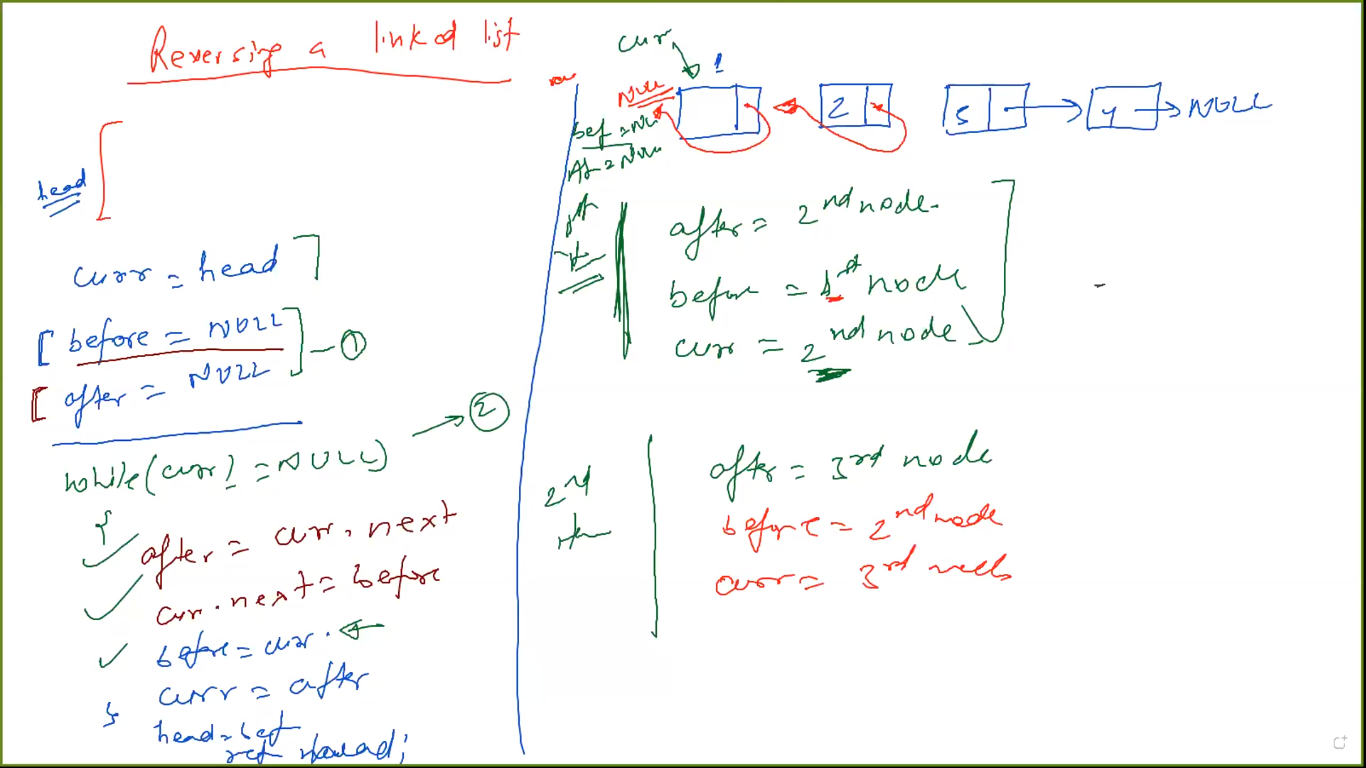 Reversing a linked list
head
curr = head
before = NULL
after = NULL
1
while(curr != NULL)
2
{
after = curr.next
curr.next = before
before = curr.
curr = after
}
head = bef
curr
1
NULL
2
NULL
bef = NU
Af = NULL
after = 2nd node.
before = 1st node
curr = 2nd node
2nd
after = 3rd node
before = 2nd node
curr = 3rd